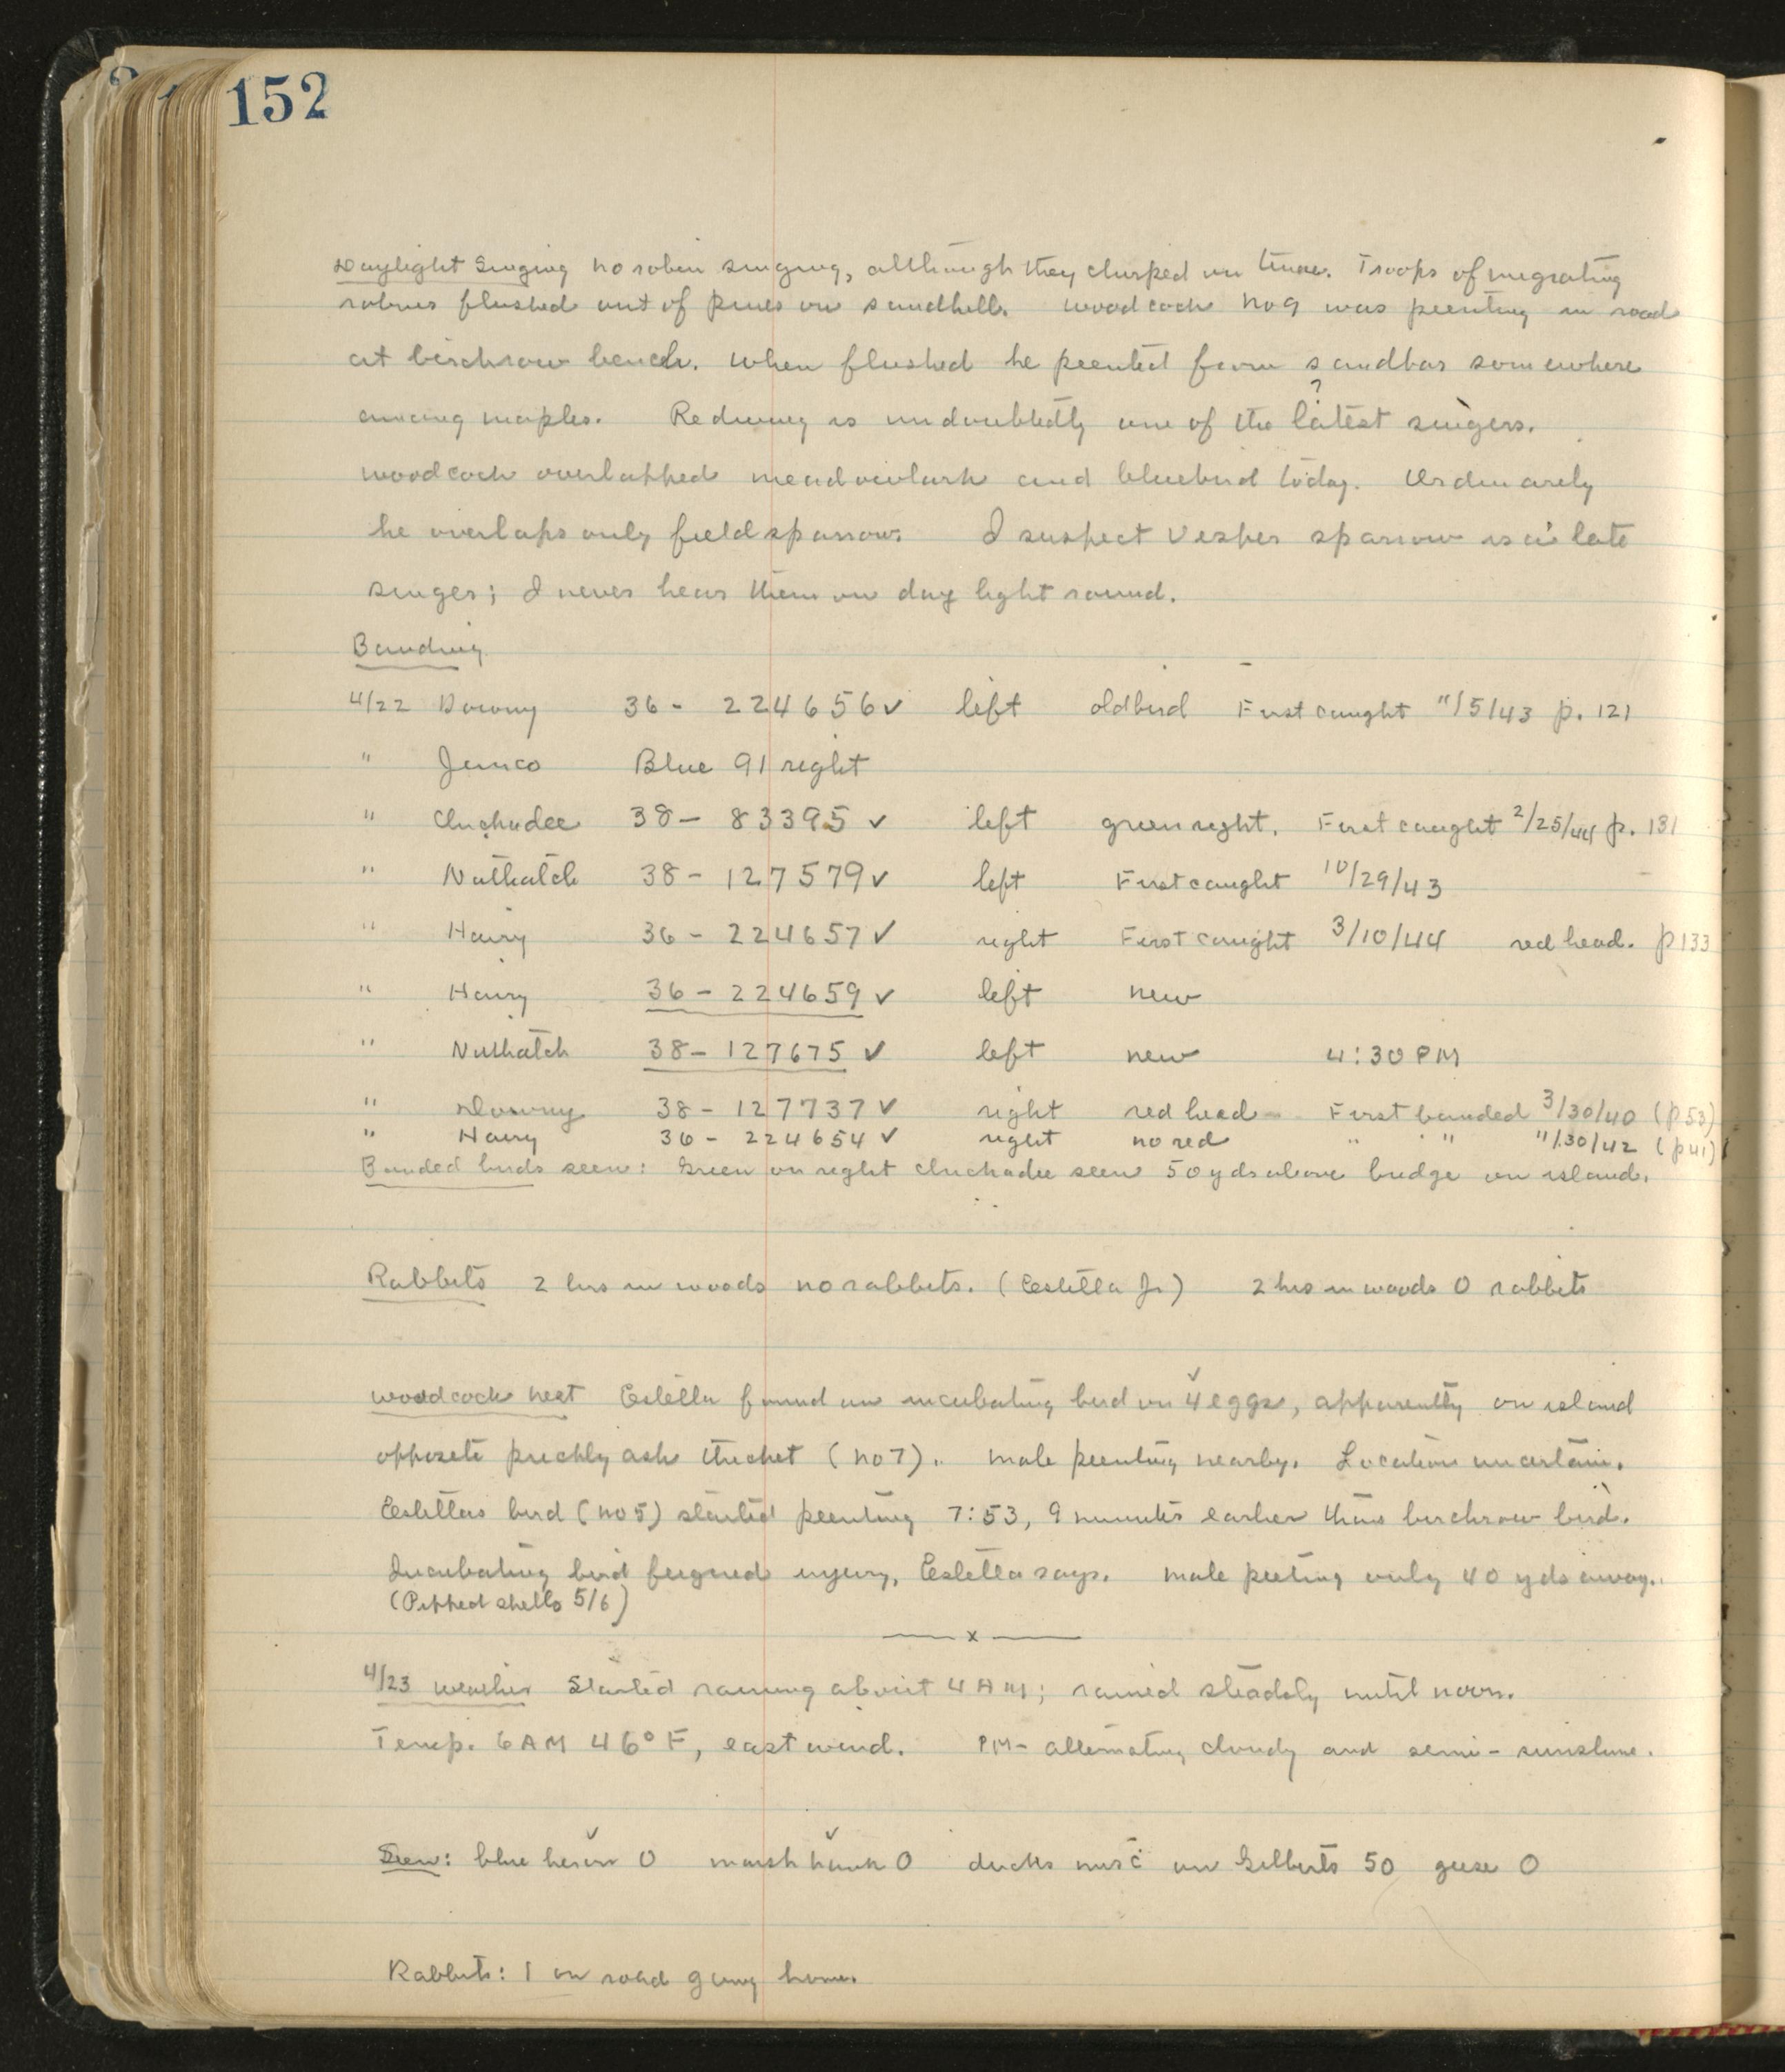 152
Daylight Singing No robin singing, although they chirped on time. Troops of migrating
robins flushed out of pines on sandhill. Woodcock No 9 was peenting in road
at birchrow bench. When flushed he peented from sandbar somewhere
?
among maples. Redwing is undoubtedly one of the latest singers.
Woodcock overlapped meadowlark and bluebird today. Ordinarily
he overlaps only fieldsparrow. I suspect Vesper sparrow is a late
singer; I never hear them on daylight round.
Banding
4/22 Downy 36- 224656 ✓ left old bird First caught 11/5/43 p. 121
" Junco Blue 91 right
" Chickadee 38- 83395 ✓ left green right. First caught 2/25/44 p. 131
" Nuthatch 38- 127579 ✓ left First caught 10/29/43
" Hairy 36- 224657 ✓ right First caught 3/10/44 red head. p133
" Hairy 36- 224659 ✓ left new
" Nuthatch 38- 127675 ✓ left new 4:30 PM
" Downy 38- 127737 ✓ right red head - First banded 3/30/40 (p53)
" Hairy 36- 224654 ✓ right no red " " 11/30/42 (p41)
Banded birds seen: Green on right chickadee seen 50 yds above bridge on island.
Rabbits 2 hrs in woods no rabbits. (Estella Jr) 2 hrs in woods 0 rabbits
✓
Woodcock nest Estella found an incubating bird on 4 eggs, apparently on island
opposite prickly ash thicket (No 7). Male peenting nearby. Location uncertain.
Estellas bird (No 5) started peenting 7:53, 9 minutes earlier than birchrow bird.
Incubating bird feigned injury, Estella says. Male peeting only 40 yds away.
(Pipped shells 5/6)
—x—
4/23 Weather Started raining about 4 AM; rained steadily until noon.
Temp. 6 AM 46° F, east wind. PM- alternating cloudy and semi-sunshine.
✓ ✓
Seen: blue heron 0 marsh hawk 0 ducks on Gilberts 50 geese 0
Rabbits: 1 on road going home.